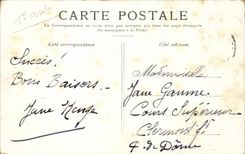 1er avril
CARTE POSTALE
La Correspondance au recto n'est pas acceptée par tous les pays étrangers
(Se renseigner à la Poste)
Côté correspondance
Côté adresse
Succès!
Bons Baisers.
Mademoiselle
Jane
Cours Supérieur
Clermont Fd
P. de Dôme